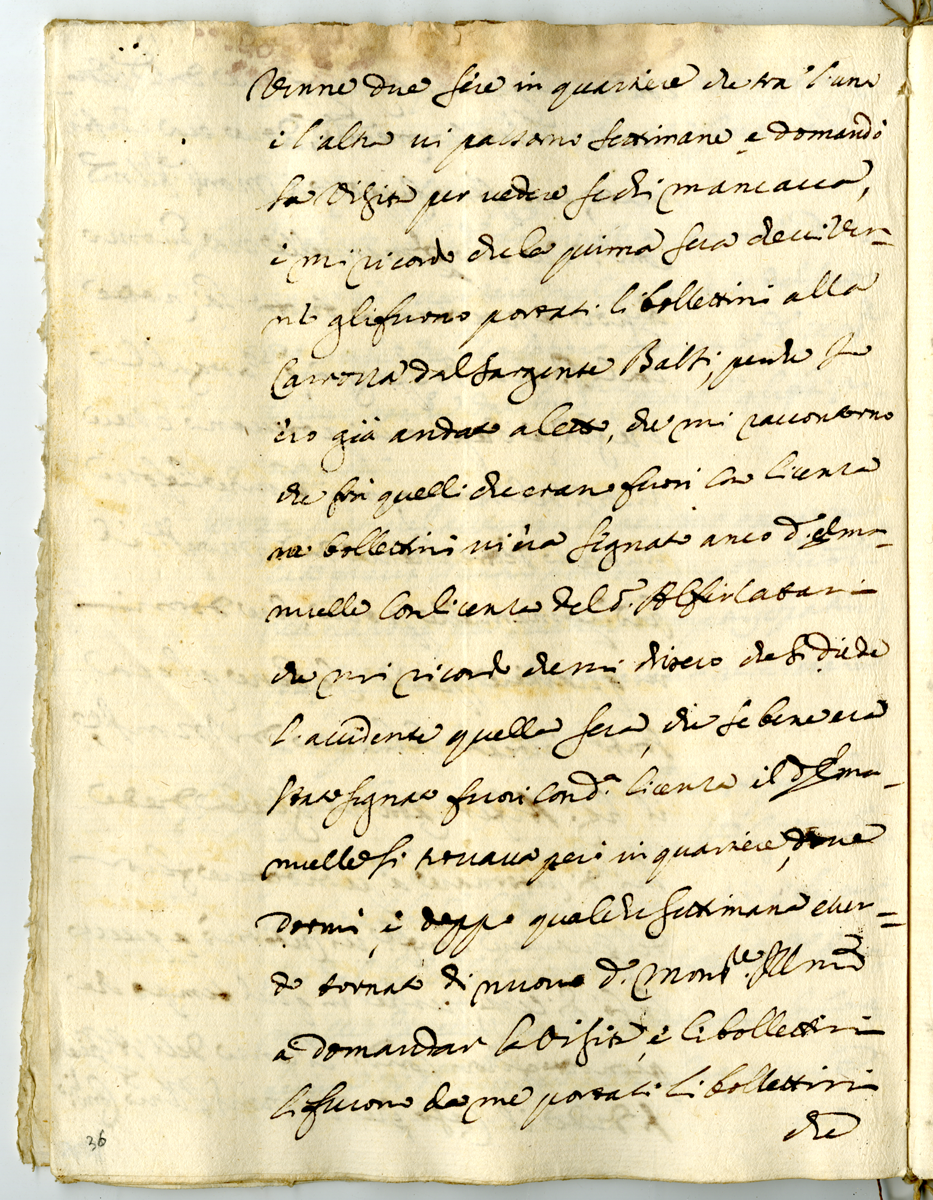 Venne due sere in quartiere che tra l'una
e l'altra vi passorno settimane, e domandò
la visita per vedere se chi mancava,
e mi ricordo che la prima sera che vi ven=
ne gli furono portati li bollettini alla
Carrozza dal Sargente Balti, perche Io
ero già andato a letto, che mi raccontorno
che fra quelli che eran fuori con licenza
ne bollettini vi era segnato anco d.º el ma=
nuelle con licenza del d.º Alfier Cattani
che mi ricordo che mi dissero che si diede
l'accidente quella sera, che se bene era
stato segnato fuori con d.ª licenza il d.º Elma=
nuelle si trovava però in quartiere, dove
dormì, e doppo qualche settimana essen=
do tornato di nuovo d.º Mons.re Ill.mo
a domandar la visita, e li bollettini
li furono da me portati li bollettini
che
36